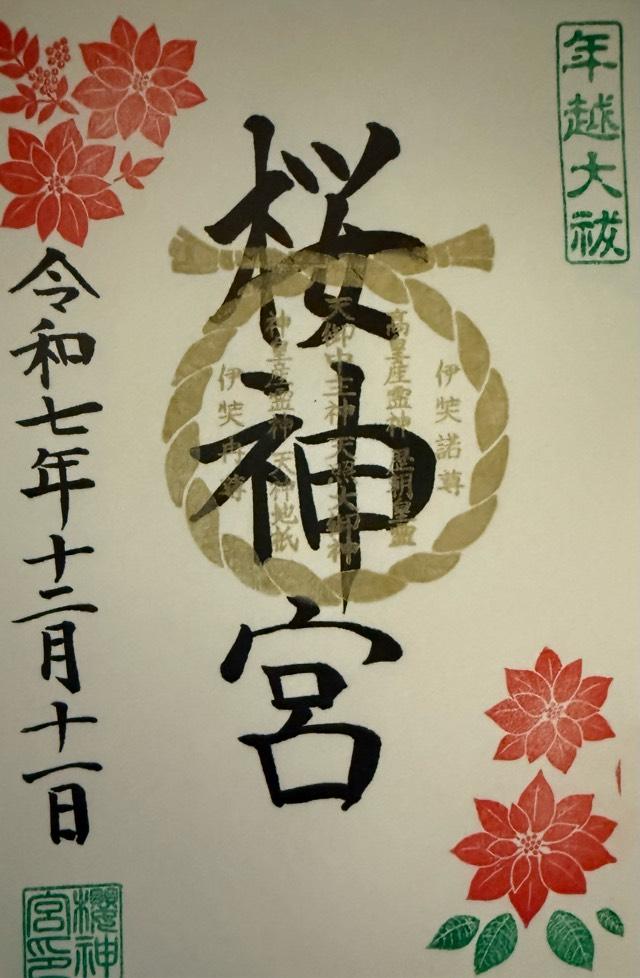 年越大祓
桜神宮
伊奘諾尊
高皇産霊神 歴朝皇霊
天御中主神 天照大御神
神皇産霊神 天神地祇
伊奘冉尊
令和七年十二月十一日
櫻神
宮印